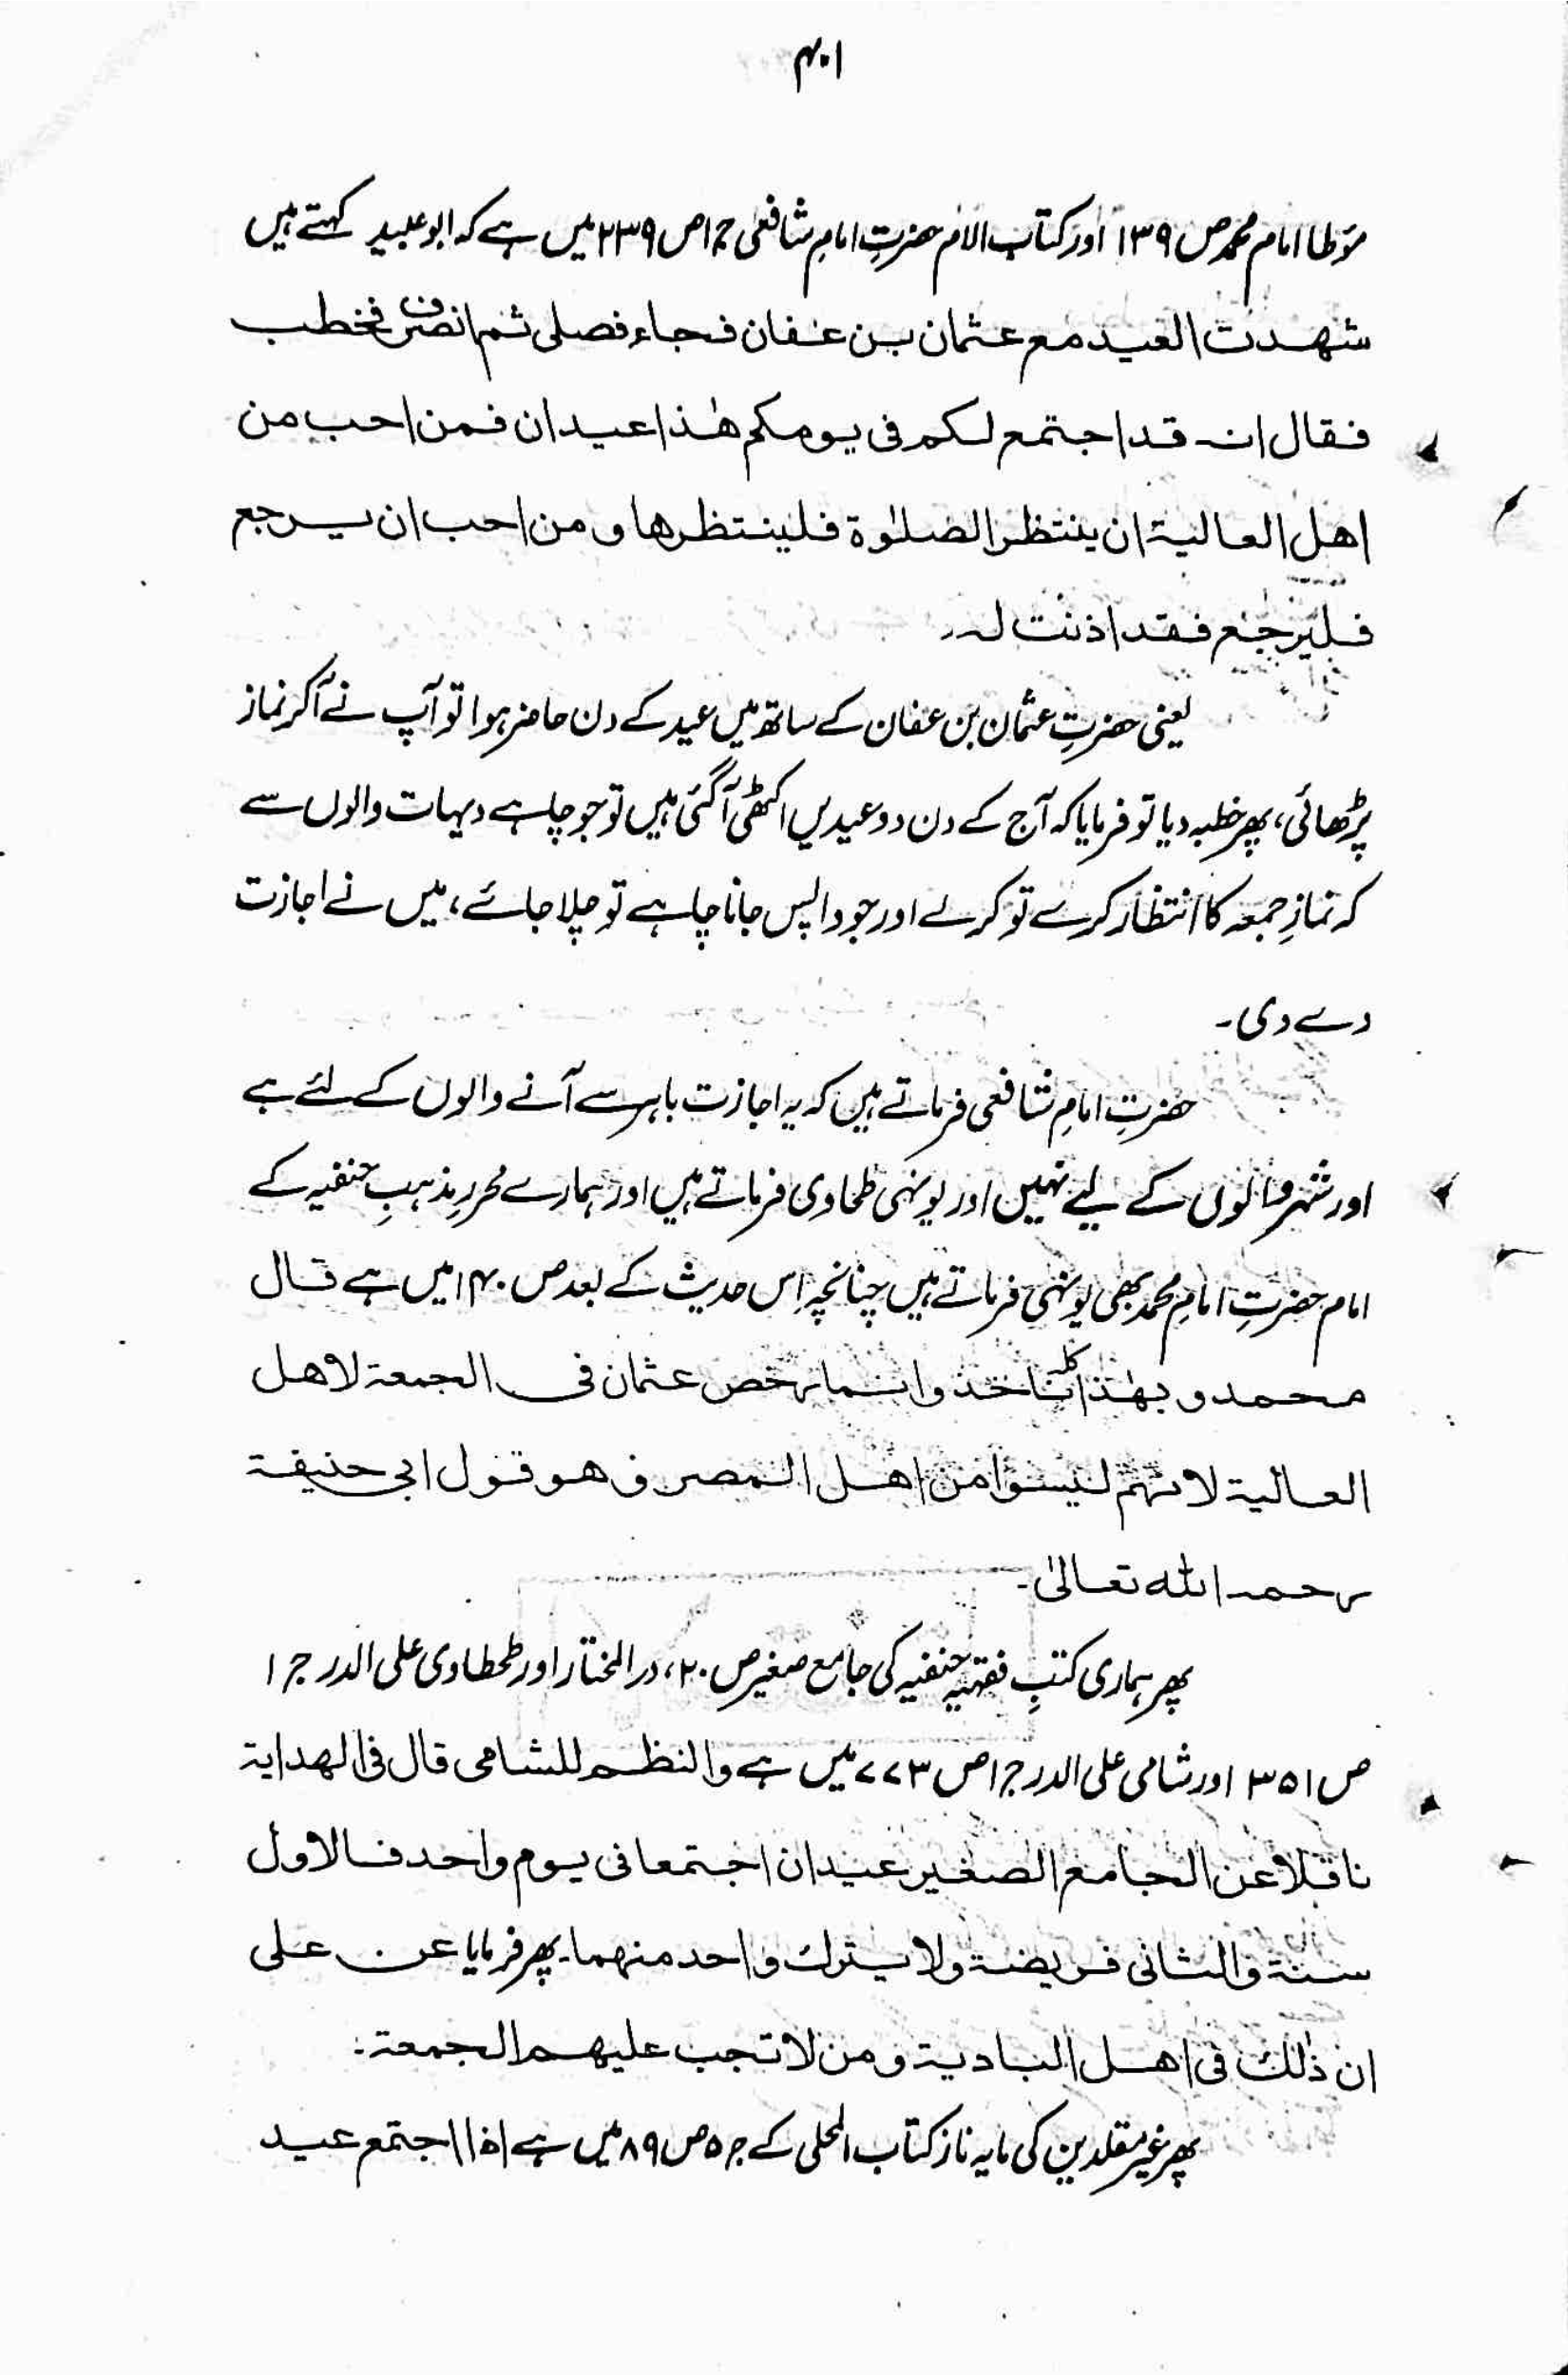 ۴۰۱
مؤطا امام محمد ص ۱۳۹ اور کتاب الام حضرتِ امامِ شافعی ج ۱ ص ۲۳۹ میں ہے کہ ابو عبید کہتے ہیں
شهدت العيد مع عثمان بن عفان فجاء فصلى ثم انصرف فخطب
فقال انه قد اجتمع لكم فى يومكم هٰذا عيدان فمن احب من
اهل العالية ان ينتظر الصلوٰة فلينتظرها و من احب ان يرجع
فليرجع فقد اذنت له۔
یعنی حضرتِ عثمان بن عفان کے ساتھ میں عید کے دن حاضر ہوا تو آپ نے آکر نماز
پڑھائی، پھر خطبہ دیا تو فرمایا کہ آج کے دن دو عیدیں اکٹھی آگئی ہیں تو جو چاہے دیہات والوں سے
کہ نمازِ جمعہ کا انتظار کرے تو کرلے اور جو واپس جانا چاہے تو چلا جائے، میں نے اجازت
دے دی۔
حضرتِ امامِ شافعی فرماتے ہیں کہ یہ اجازت باہر سے آنے والوں کے لئے ہے
اور شہر والوں کے لیے نہیں اور یونہی طحاوی فرماتے ہیں اور ہمارے محررِ مذہبِ حنفیہ کے
امام حضرتِ امامِ محمد بھی یونہی فرماتے ہیں چنانچہ اِس حدیث کے بعد ص ۱۴۰ میں ہے قال
محمد و بهٰذا كله ناخذ و انما رخص عثمان فى الجمعة لاهل
العالية لانهم ليسوا من اهل المصر و هو قول ابى حنيفة
رحمه الله تعالىٰ۔
پھر ہماری کتبِ فقہیہ حنفیہ کی جامع صغیر ص ۲۰، در المختار اور طحطاوی علی الدر ج ۱
ص ۳۵۱ اور شامی علی الدر ج ۱ ص ۷۷۳ میں ہے والنظم للشامى قال فى الهداية
ناقلا عن الجامع الصغير عيدان اجتمعا فى يوم واحد فالاول
سنة والثانى فريضة ولا يترك واحد منهما۔ پھر فرمایا عن على
ان ذٰلك فى اهل البادية و من لا تجب عليهم الجمعة۔
پھر غیر مقلدین کی مایہ ناز کتاب المحلی کے ج ۵ ص ۸۹ میں ہے اذا اجتمع عيد